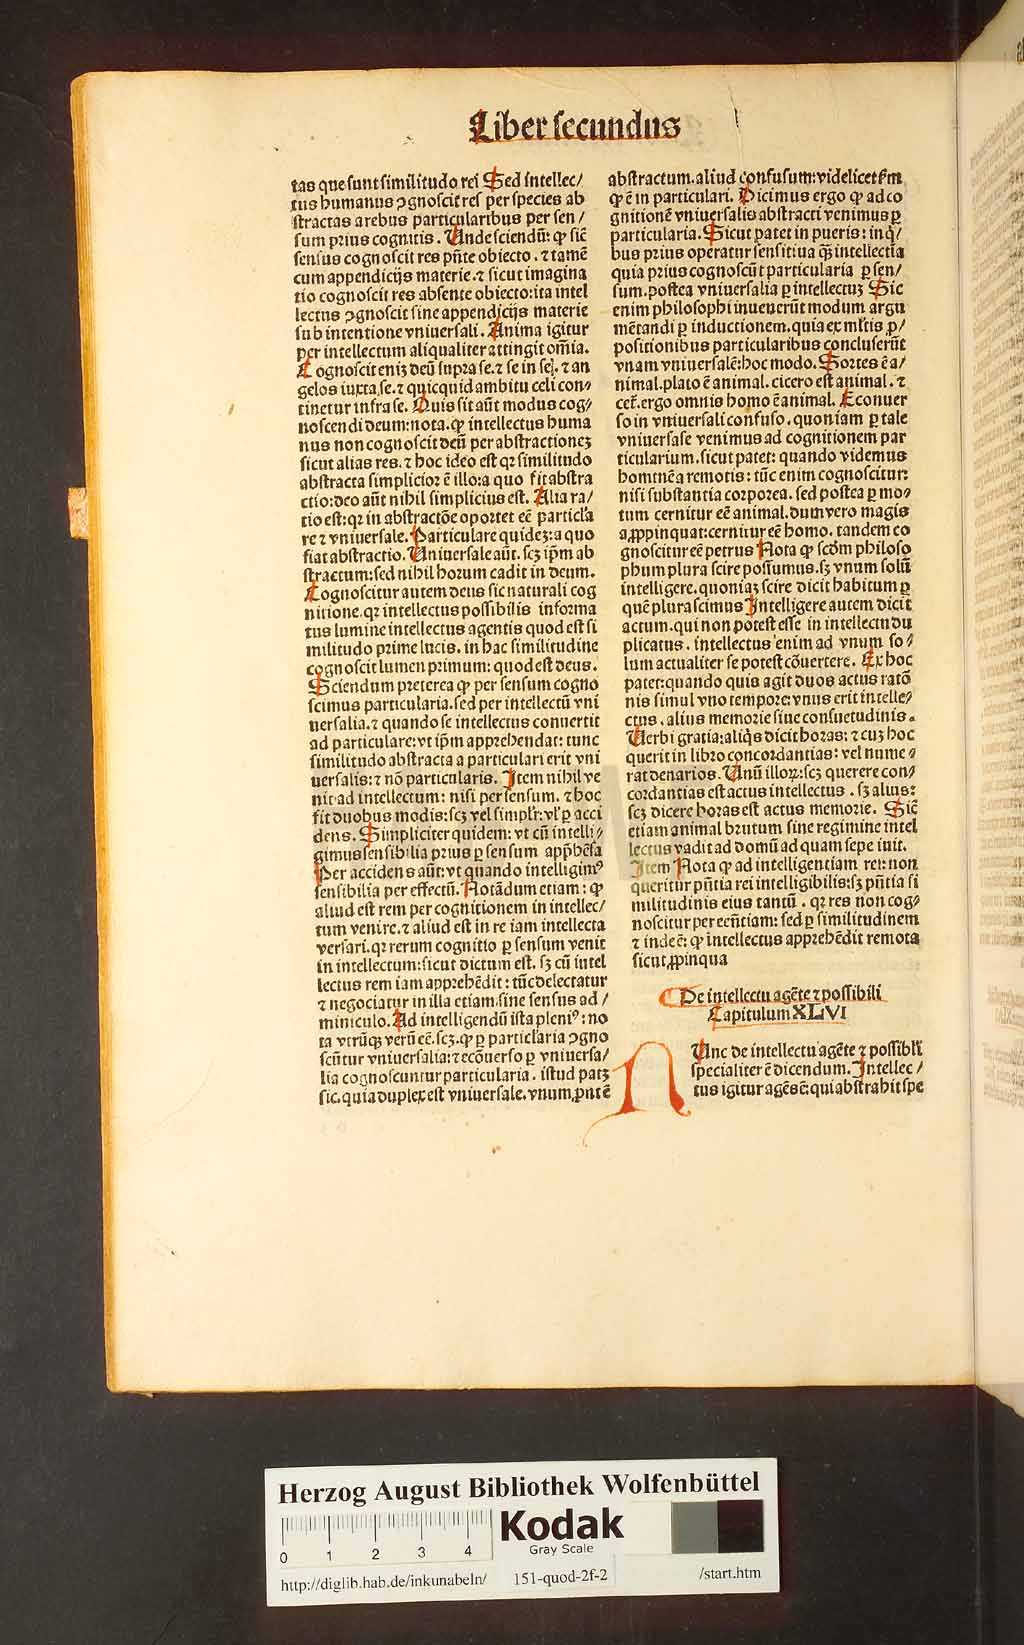 Liber secundus
tas que sunt similitudo rei Sed intellec/
tus humanus ꝯgnoscit res per species ab
stractas a rebus particularibus per sen/
sum prius cognitis. Unde sciendū: ꝙ sic̄
sensus cognoscit res pn̄te obiecto. ⁊ tamē
cum appendicijs materie. ⁊ sicut imagina
tio cognoscit res absente obiecto: ita intel
lectus ꝯgnoscit sine appendicijs materie
sub intentione vniuersali. Anima igitur
per intellectum aliqualiter attingit om̄ia.
Cognoscit eniꝫ deū supra se. ⁊ se in se. ⁊ an
gelos iuxta se. ⁊ quicquid ambitu celi con/
tinetur infra se. Quis sit aūt modus cog/
noscendi deum: nota. ꝙ intellectus huma
nus non cognoscit deū per abstractioneꝫ
sicut alias res. ⁊ hoc ideo est qꝛ similitudo
abstracta simplicior ē illo: a quo fit abstra
ctio: deo aūt nihil simplicius est. Alia ra/
tio est: qꝛ in abstractōe oportet eē particl'a
re ⁊ vniuersale. Particulare quideꝫ: a quo
fiat abstractio. Uniuersale aūt. scꝫ ip̄m ab
stractum: sed nihil horum cadit in deum.
Cognoscitur autem deus sic naturali cog
nitione. qꝛ intellectus possibilis informa
tus lumine intellectus agentis quod est si
militudo prime lucis. in hac similitudine
cognoscit lumen primum: quod est deus.
Sciendum preterea ꝙ per sensum cogno
scimus particularia. sed per intellectū vni
uersalia. ⁊ quando se intellectus conuertit
ad particulare: vt ip̄m apprehendat: tunc
similitudo abstracta a particulari erit vni
uersalis: ⁊ nō particularis. Item nihil ve
nit ad intellectum: nisi per sensum. ⁊ hoc
fit duobus modis: scꝫ vel simplr̄: vl' ꝑ acci
dens. Simpliciter quidem: vt cū intelli/
gimus sensibilia prius ꝑ sensum app̄hēsa
Per accidens aūt: vt quando intelligimꝰ
sensibilia per effectū. Notādum etiam: ꝙ
aliud est rem per cognitionem in intellec/
tum venire. ⁊ aliud est in re iam intellecta
versari. qꝛ rerum cognitio ꝑ sensum venit
in intellectum: sicut dictum est. sꝫ cū intel
lectus rem iam apprehēdit: tūc delectatur
⁊ negociatur in illa etiam. sine sensus ad/
miniculo. Ad intelligendū ista pleniꝰ: no
ta vtrūqꝫ verū eē. scꝫ. ꝙ ꝑ particl'aria ꝯgno
scūtur vniuersalia: ⁊ ecōuerso ꝑ vniuersa/
lia cognoscuntur particularia. istud patꝫ
sic. quia duplex est vniuersale. vnum ꝓrītē
abstractum. aliud confusum: videlicet
ꝙ ē in particulari. Dicimus ergo ꝙ ad co
gnitionē vniuersalis abstracti venimus ꝑ
particularia. Sicut patet in pueris: in qͥ/
bus prius operatur sensitiua qꝫ intellectia
quia prius cognoscūt particularia ꝑ sen/
sum. postea vniuersalia ꝑ intellectuꝫ Sic
enim philosophi inuenerūt modum argu
mētandi ꝑ inductionem. quia ex ml'tis ꝓ/
positionibus particularibus concluserūt
vnam vniuersalē: hoc modo. Sortes ē a/
nimal. plato ē animal. cicero est animal. ⁊
cet̄. ergo omnis homo ē animal. Econuer
so in vniuersali confuso. quoniam ꝑ tale
vniuersale venimus ad cognitionem par
ticularium. sicut patet: quando videmus
hominē a remotis: tūc enim cognoscitur:
nisi substantia corporea. sed postea ꝑ mo/
tum cernitur eē animal. dum vero magis
aꝓpinquat: cernitur eē homo. tandem co
gnoscitur eē petrus Nota ꝙ scd'm philoso
phum plura scire possumus. sꝫ vnum solū
intelligere. quoniaꝫ scire dicit habitum ꝑ
quē plura scimus Intelligere autem dicit
actum. qui non potest esse in intellectu du
plicatus. intellectus enim ad vnum so/
lum actualiter se potest cōuertere. Ex hoc
patet: quando quis agit duos actus ratō
nis simul vno tempore: vnus erit intelle/
ctus. alius memorie siue consuetudinis.
Uerbi gratia: aliqͥs dicit horas: ⁊ cuꝫ hoc
querit in libro concordantias: vel nume/
rat denarios. Unū illoꝝ: scꝫ querere con/
cordantias est actus intellectus. sꝫ alius:
scꝫ dicere horas est actus memorie. Sic̄
etiam animal brutum sine regimine intel
lectus vadit ad domū ad quam sepe iuit.
Item Nota ꝙ ad intelligentiam rei: non
queritur pn̄tia rei intelligibilis: sꝫ pn̄tia si
militudinis eius tantū. qꝛ res non cog/
noscitur per ecn̄tiam: sed ꝑ similitudinem
⁊ inde ē: ꝙ intellectus apprehēdit remota
sicut ꝓpinqua
De intellectu agēte ⁊ possibili
Capitulum XLVI
NUnc de intellectu agēte ⁊ possibli
specialiter ē dicendum. Intellec/
tus igitur agēs ē: qui abstrahit spe
Herzog August Bibliothek Wolfenbüttel
0 1 2 3 4
Kodak
Gray Scale
http://diglib.hab.de/inkunabeln/ 151-quod-2f-2 /start.htm